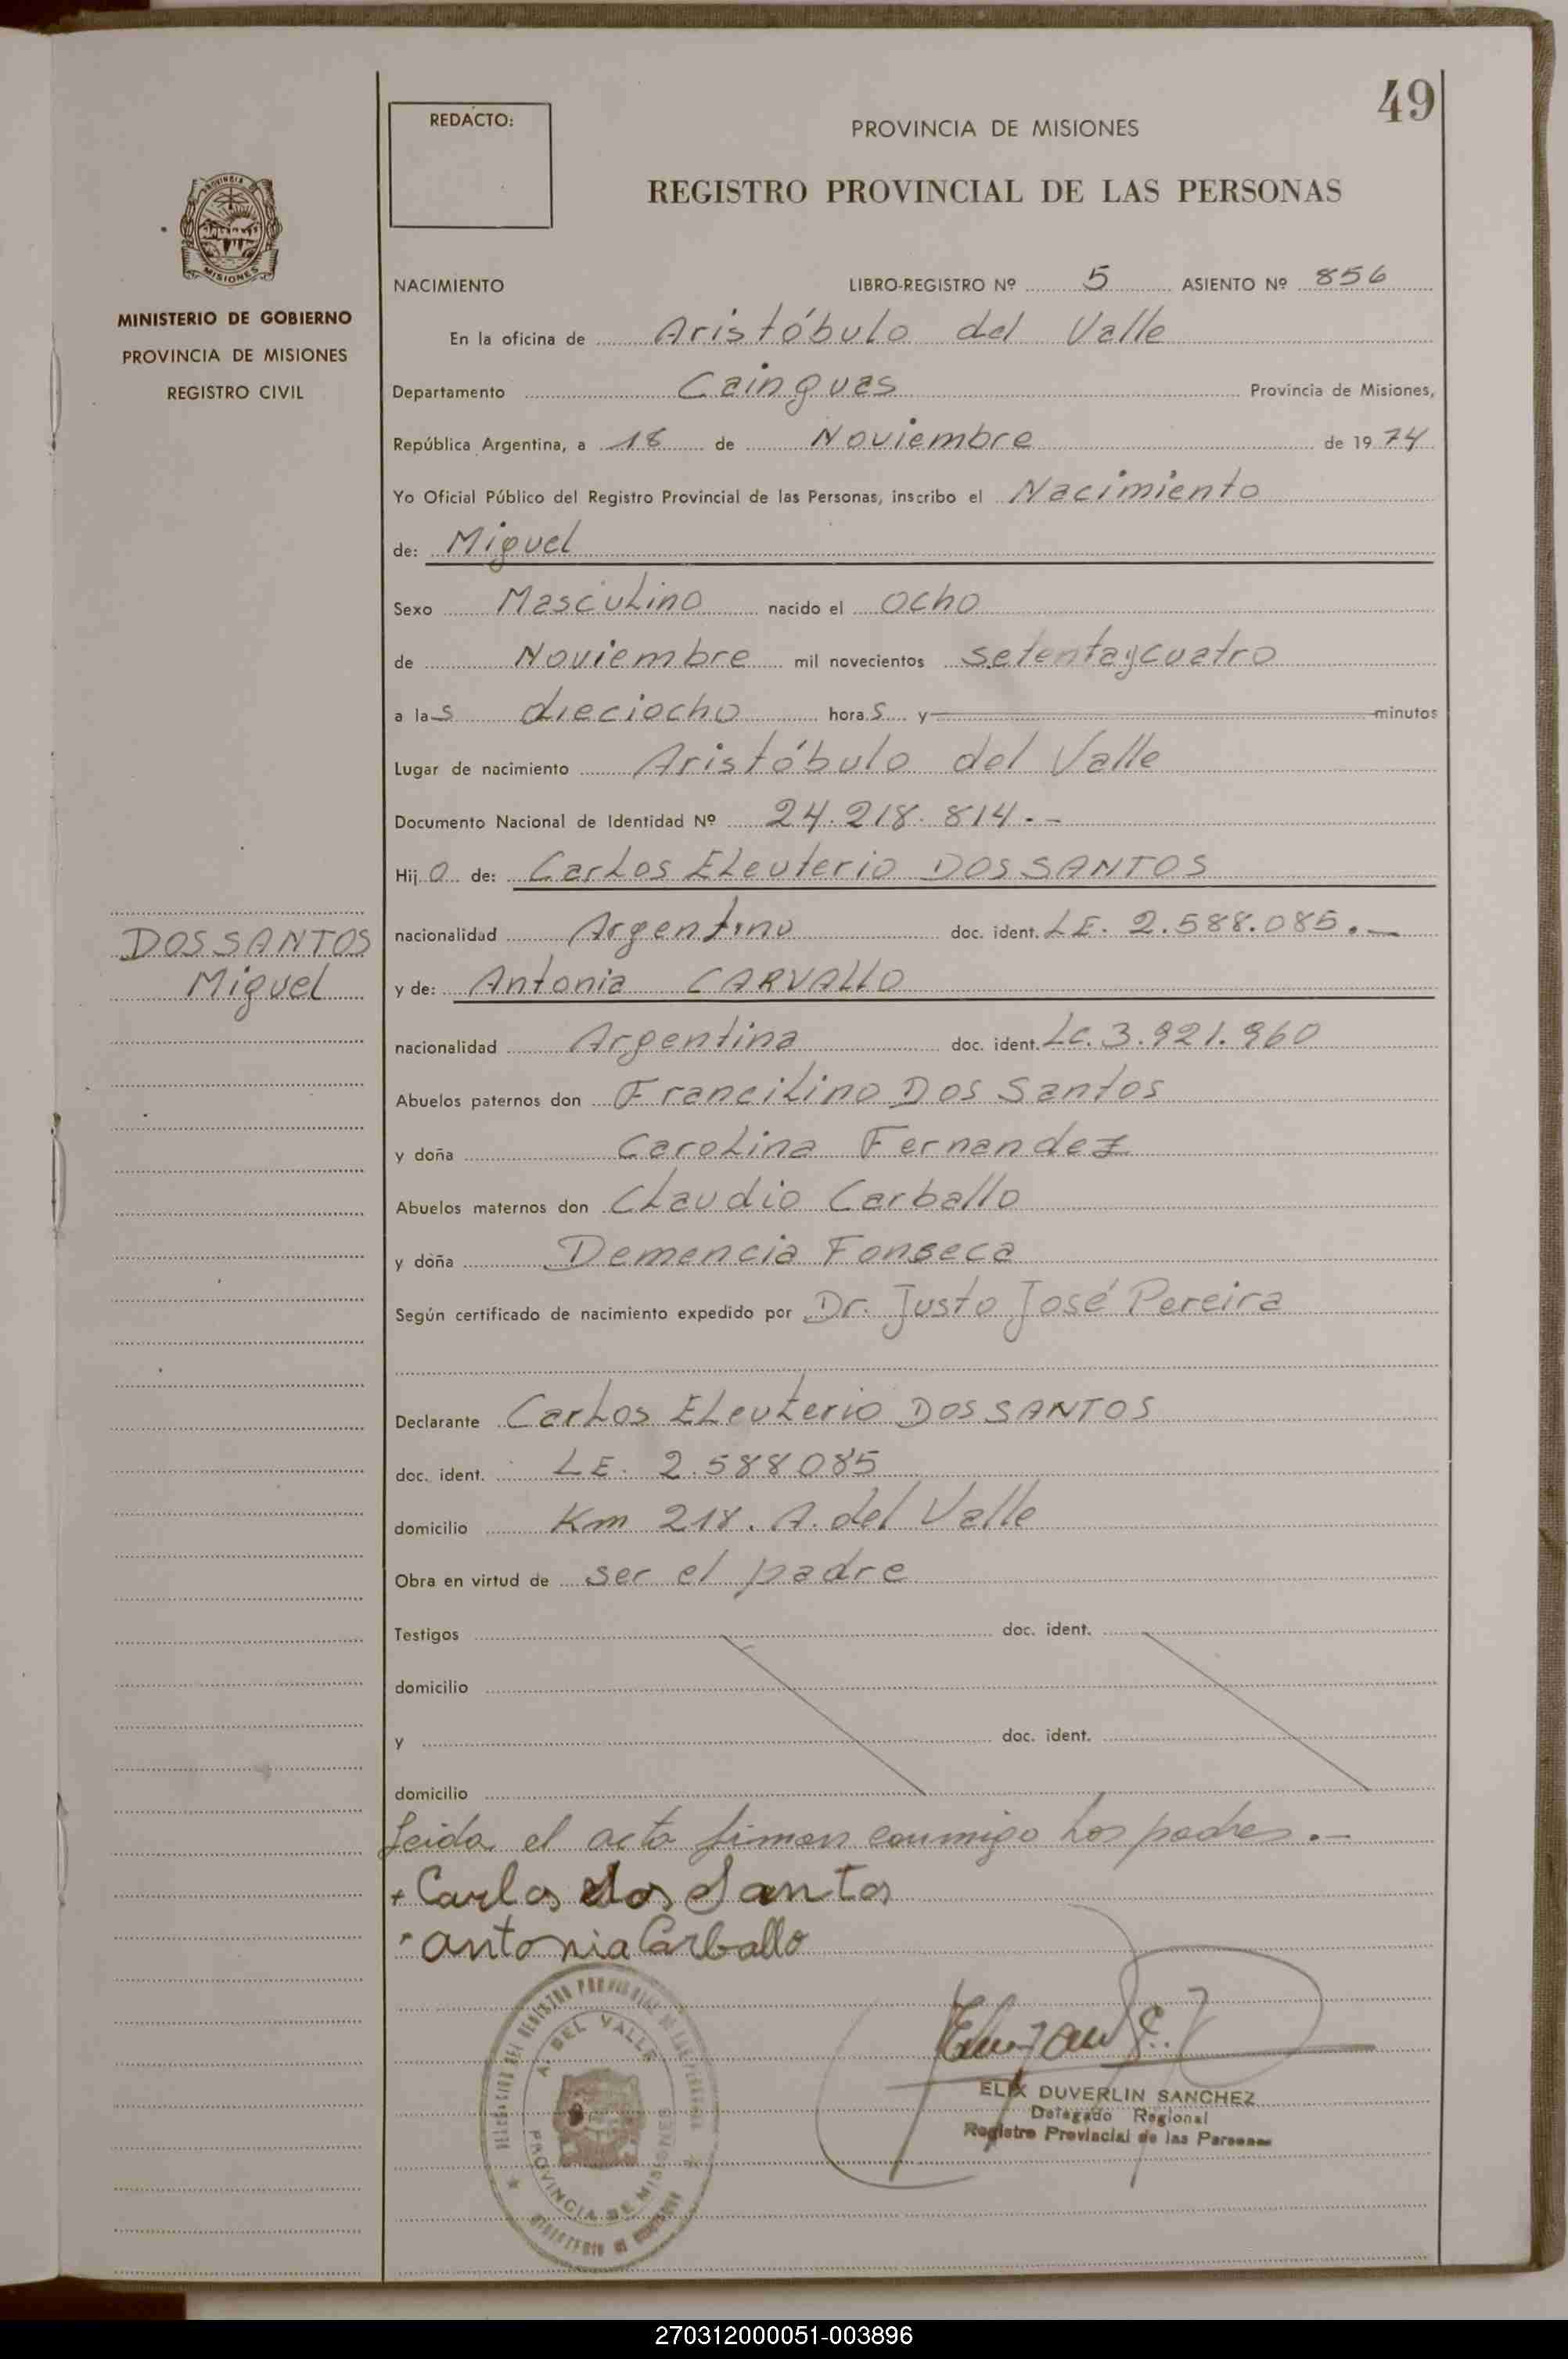 49
REDACTO:
PROVINCIA DE MISIONES
REGISTRO PROVINCIAL DE LAS PERSONAS
PROVINCIA
MISIONES
MINISTERIO DE GOBIERNO
PROVINCIA DE MISIONES
REGISTRO CIVIL
NACIMIENTO LIBRO-REGISTRO Nº 5 ASIENTO Nº 856
En la oficina de Aristóbulo del Valle
Departamento Cainguas Provincia de Misiones,
República Argentina, a 18 de Noviembre de 1974
Yo Oficial Público del Registro Provincial de las Personas, inscribo el Nacimiento
de: Miguel
Sexo Masculino nacido el ocho
de Noviembre mil novecientos setentaycuatro
a las dieciocho horas y minutos
Lugar de nacimiento Aristóbulo del Valle
Documento Nacional de Identidad Nº 24.218.814.-
Hijo de: Carlos Eleuterio DOS SANTOS
DOS SANTOS
Miguel
nacionalidad Argentino doc. ident. LE. 2.588.085.-
y de: Antonia CARVALLO
nacionalidad Argentina doc. ident. LC. 3.921.960
Abuelos paternos don Francilino Dos Santos
y doña Carolina Fernandez
Abuelos maternos don Claudio Carballo
y doña Demencia Fonseca
Según certificado de nacimiento expedido por Dr. Justo José Pereira
Declarante Carlos Eleuterio DOS SANTOS
doc. ident. LE. 2.588085
domicilio Km 218. A. del Valle
Obra en virtud de ser el padre
Testigos doc. ident.
domicilio
y doc. ident.
domicilio
Leida el acta firman conmigo los padres.-
Carlos dos Santos
Antonia Carballo
DELEGACION DEL REGISTRO PROVINCIAL DE LAS PERSONAS
A. DEL VALLE
PROVINCIA DE MISIONES
MINISTERIO DE GOBIERNO
ELIX DUVERLIN SANCHEZ
Delegado Regional
Registro Provincial de las Personas
270312000051-003896